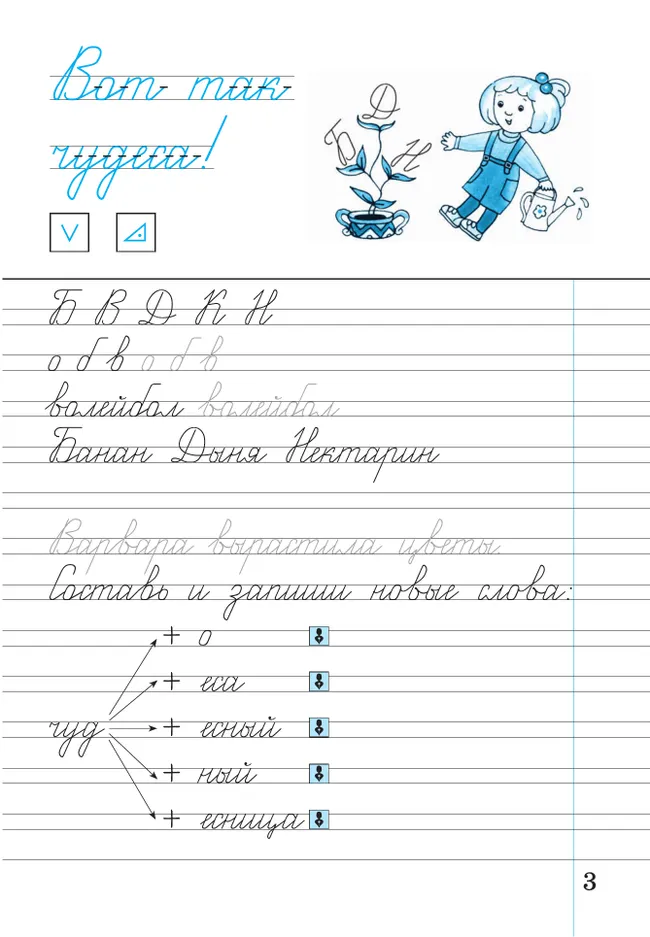 Вот так
чудеса!
Д
Б
Н
Б В Д К Н
о б в о б в
волейбол волейбол
Банан Дыня Нектарин
Варвара вырастила цветы.
Составь и запиши новые слова:
+ о
+ еса
чуд + есный
+ ный
+ есница
3